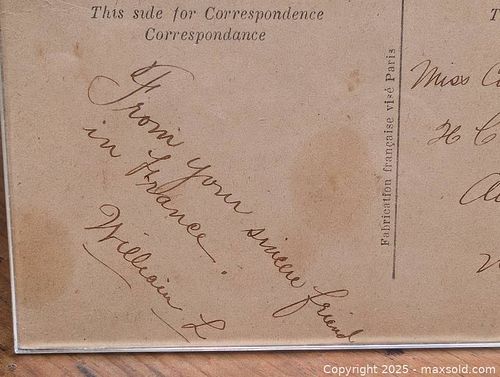 This side for Correspondence
Correspondance
From your sincere friend
in France.
William L
Fabrication française visé Paris
T
Miss C
H C
Copyright 2025 - maxsold.com